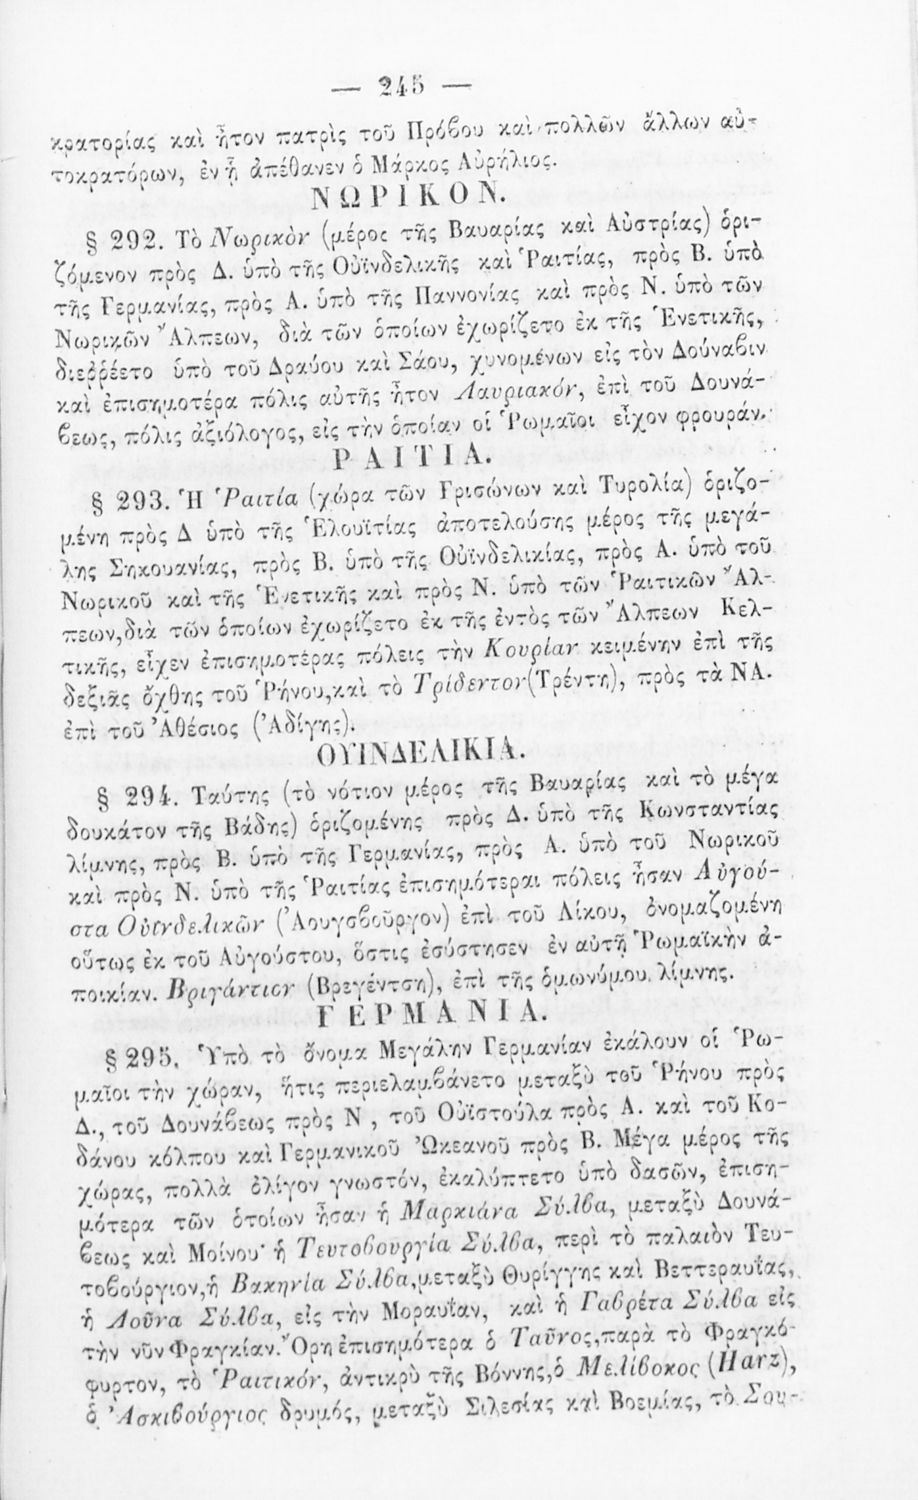 — 245 —
κρατορίας καὶ ἦτον πατρὶς τοῦ Πρόβου καὶ πολλῶν ἄλλων αὐ-
τοκρατόρων, ἐν ᾗ ἀπέθανεν ὁ Μάρκος Αὐρήλιος.
ΝΩΡΙΚΟΝ.
§ 292. Τὸ Νωρικὸν (μέρος τῆς Βαυαρίας καὶ Αὐστρίας) ὁρι-
ζόμενον πρὸς Δ. ὑπὸ τῆς Οὐϊνδελικῆς καὶ Ῥαιτίας, πρὸς Β. ὑπὸ
τῆς Γερμανίας, πρὸς Α. ὑπὸ τῆς Παννονίας καὶ πρὸς Ν. ὑπὸ τῶν
Νωρικῶν Ἄλπεων, διὰ τῶν ὁποίων ἐχωρίζετο ἐκ τῆς Ἑνετικῆς,
διεῤῥέετο ὑπὸ τοῦ Δραύου καὶ Σάου, χυνομένων εἰς τὸν Δούναβιν
καὶ ἐπισημοτέρα πόλις αὐτῆς ἦτον Λαυριακόν, ἐπὶ τοῦ Δουνά-
βεως, πόλις ἀξιόλογος, εἰς τὴν ὁποίαν οἱ Ῥωμαῖοι εἶχον φρουράν.
ΡΑΙΤΙΑ.
§ 293. Ἡ Ῥαιτία (χώρα τῶν Γρισώνων καὶ Τυρολία) ὁριζο-
μένη πρὸς Δ ὑπὸ τῆς Ἑλουϊτίας ἀποτελούσης μέρος τῆς μεγά-
λης Σηκουανίας, πρὸς Β. ὑπὸ τῆς Οὐϊνδελικίας, πρὸς Α. ὑπὸ τοῦ
Νωρικοῦ καὶ τῆς Ἑνετικῆς καὶ πρὸς Ν. ὑπὸ τῶν Ῥαιτικῶν Ἄλ-
πεων,διὰ τῶν ὁποίων ἐχωρίζετο ἐκ τῆς ἐντὸς τῶν Ἄλπεων Κελ-
τικῆς, εἶχεν ἐπισημοτέρας πόλεις τὴν Κουρίαν κειμένην ἐπὶ τῆς
δεξιᾶς ὄχθης τοῦ Ῥήνου,καὶ τὸ Τρίδεντον(Τρέντη), πρὸς τὰ ΝΑ.
ἐπὶ τοῦ Ἀθέσιος (Ἀδίγης).
ΟΥΙΝΔΕΛΙΚΙΑ.
§ 294. Ταύτης (τὸ νότιον μέρος τῆς Βαυαρίας καὶ τὸ μέγα
δουκάτον τῆς Βάδης) ὁριζομένης πρὸς Δ. ὑπὸ τῆς Κωνσταντίας
λίμνης, πρὸς Β. ὑπὸ τῆς Γερμανίας, πρὸς Α. ὑπὸ τοῦ Νωρικοῦ
καὶ πρὸς Ν. ὑπὸ τῆς Ῥαιτίας ἐπισημότεραι πόλεις ἦσαν Αὐγού-
στα Οὐινδελικῶν (Ἀουγσβοῦργον) ἐπὶ τοῦ Λίκου, ὀνομαζομένη
οὕτως ἐκ τοῦ Αὐγούστου, ὅστις ἐσύστησεν ἐν αὐτῇ Ῥωμαϊκὴν ἀ-
ποικίαν. Βριγάντιον (Βρεγέντση), ἐπὶ τῆς ὁμωνύμου λίμνης.
ΓΕΡΜΑΝΙΑ.
§ 295. Ὑπὸ τὸ ὄνομα Μεγάλην Γερμανίαν ἐκάλουν οἱ Ῥω-
μαῖοι τὴν χώραν, ἥτις περιελαμβάνετο μεταξὺ τοῦ Ῥήνου πρὸς
Δ., τοῦ Δουνάβεως πρὸς Ν , τοῦ Οὐϊστούλα πρὸς Α. καὶ τοῦ Κο-
δάνου κόλπου καὶ Γερμανικοῦ Ὠκεανοῦ πρὸς Β. Μέγα μέρος τῆς
χώρας, πολλὰ ὀλίγον γνωστόν, ἐκαλύπτετο ὑπὸ δασῶν, ἐπιση-
μότερα τῶν ὁτοίων ἦσαν ἡ Μαρκιάνα Σύλβα, μεταξὺ Δουνά-
βεως καὶ Μοίνου· ἡ Τευτοβουργία Σύλβα, περὶ τὸ παλαιὸν Τευ-
τοβούργιον,ἡ Βακηνία Σύλβα,μεταξὺ Θυρίγγης καὶ Βεττεραυΐας,
ἡ Λοῦνα Σύλβα, εἰς τὴν Μοραυΐαν, καὶ ἡ Γαβρέτα Σύλβα εἰς
τὴν νῦν Φραγκίαν. Ὄρη ἐπισημότερα ὁ Ταῦνος,παρὰ τὸ Φραγκό-
φυρτον, τὸ Ῥαιτικόν, ἀντικρὺ τῆς Βόννης,ὁ Μελίβοκος (Harz),
ὁ Ἀσκιβούργιος δρυμός, μεταξὺ Σιλεσίας καὶ Βοεμίας, τὸ Σου-